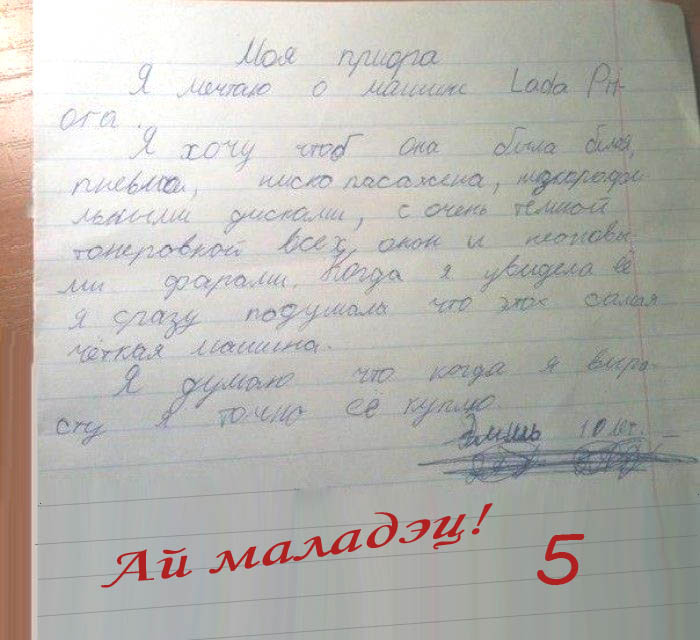 Моя приора
Я мечтаю о машине Lada Pri-
ora.
Я хочу чтоб она была белой,
пневма, ниско пасажена, широкпрофи
льными дисками, с очень темной
тонеровкой всех окон и неоновы-
ми фарами. Когда я увидела её
я сразу подумала что это самая
чёткая машина.
Я думаю что когда я выра-
сту я точно её куплю.
Эмиль 10 лет.
Ай маладэц!
5